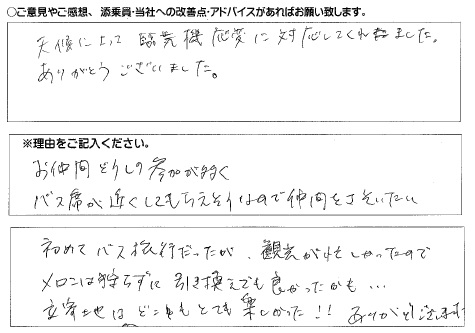 ○ご意見やご感想、添乗員・当社への改善点・アドバイスがあればお願い致します。
天候によって臨機応変に対応してくれました。
ありがとうございました。
※理由をご記入ください。
お仲間どうしの参加が多く
バス席が近くしてもらえそうなので仲間をさそいたい
初めてバス旅行だったが、観光が忙しかったので
メロンは狩らずに引き換えでも良かったかも…
立寄地はどこもとても楽しかった!! ありがとう